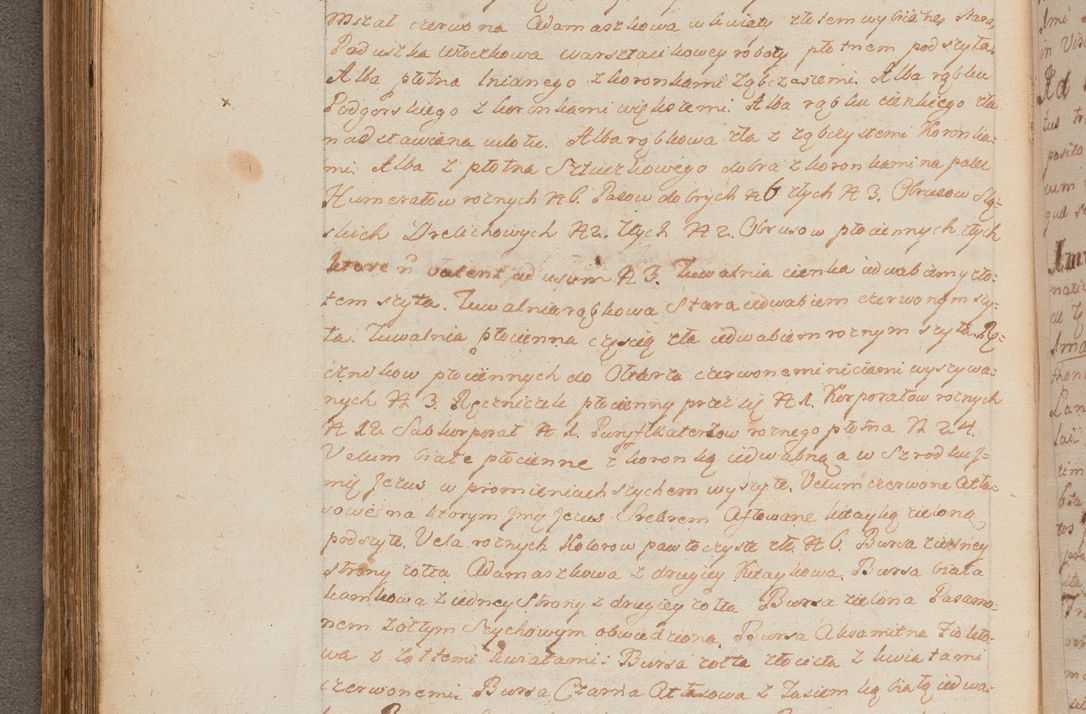 Mszał czerwona Adamaszkowa w kwiaty złotem wybiiane stara
Paduszka Włoczkowa warsztacikowey roboty płotnem podszyta.
Alba płotna lnianego z koronkami ząbczastemi. Alba rąbku
Podgorskiego z koronkami większemi. Alba rąbku cienkiego zła
nadstawiana w dole. Alba rąbkowa zła z ząbczystemi Koronka=
mi. Alba z płotna Sztuczkowego dobra z koronkami na palec
Humerałow roznych N 6. Pasow dobrych N 6 złych N 3. Obrusow Slą=
skich Drelichowych N 2. złych N 2. Obrusow płociennych złych
ktore n valent ad usum N 3. Tuwalnia cienka iedwabiem y zło=
tem szyta. Tuwalnia rąbkowa Stara iedwabiem czerwonym szy=
ta. Tuwalnia płocienna częscią zła iedwabiem roznym szyta. Rę=
cznikow płociennych do Ołtarza czerwonemi niciami wyszywa=
nych N 3. Ręczniczek płocienny przez się N 1. Korporałow roznych
N 12. Subkorporał N 1. Puryfikaterzow roznego płotna N 24.
Velum białe płocienne z koronką iedwabną a w Szrodku J=
mię Jezus w promieniach szychem wyszyte. Velum czerwone Atła=
sowe na ktorym Jmię Jezus Srebrem Aftowane kitayką zieloną
podszyte. Vela roznych Kolorow pawłoczyste złe N 6. Bursa z iedney
strony zołta Adamaszkowa z drugiey Kitaykowa. Bursa biała
kamkowa z iedney Strony z drugiey zołta Bursa zielona Pasamo=
nem zołtym Szychowym obwiedziona. Bursa Aksamitna Fioleto=
wa z zołtemi kwiatami: Bursa zołta złocista z kwiatami
czerwonemi. Bursa Czarna Atłasowa z Tasiemką białą iedwa=